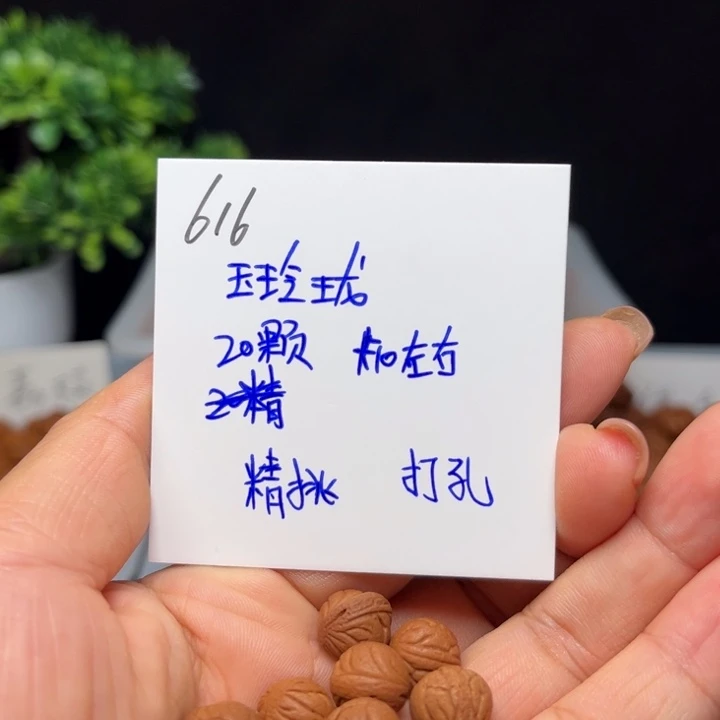 616
玉玲珑
20颗 10左右
精
精挑 打孔